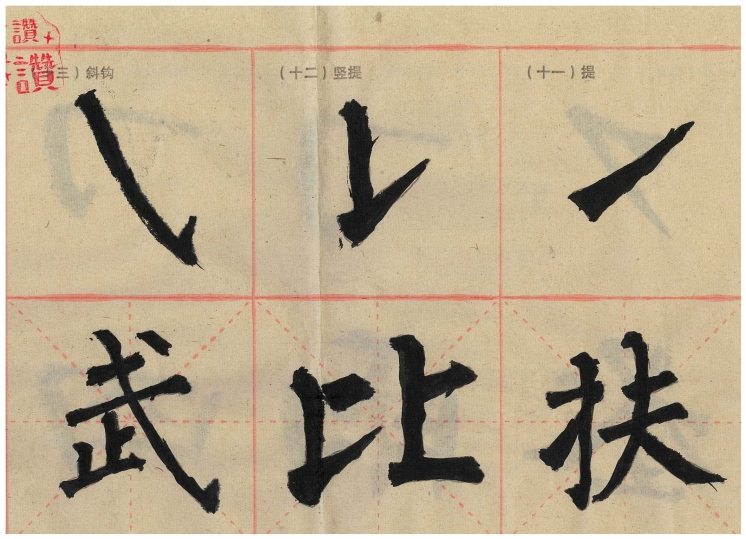 讚
讚
（十一）提
（十二）竖提
三）斜钩
扶
比
武